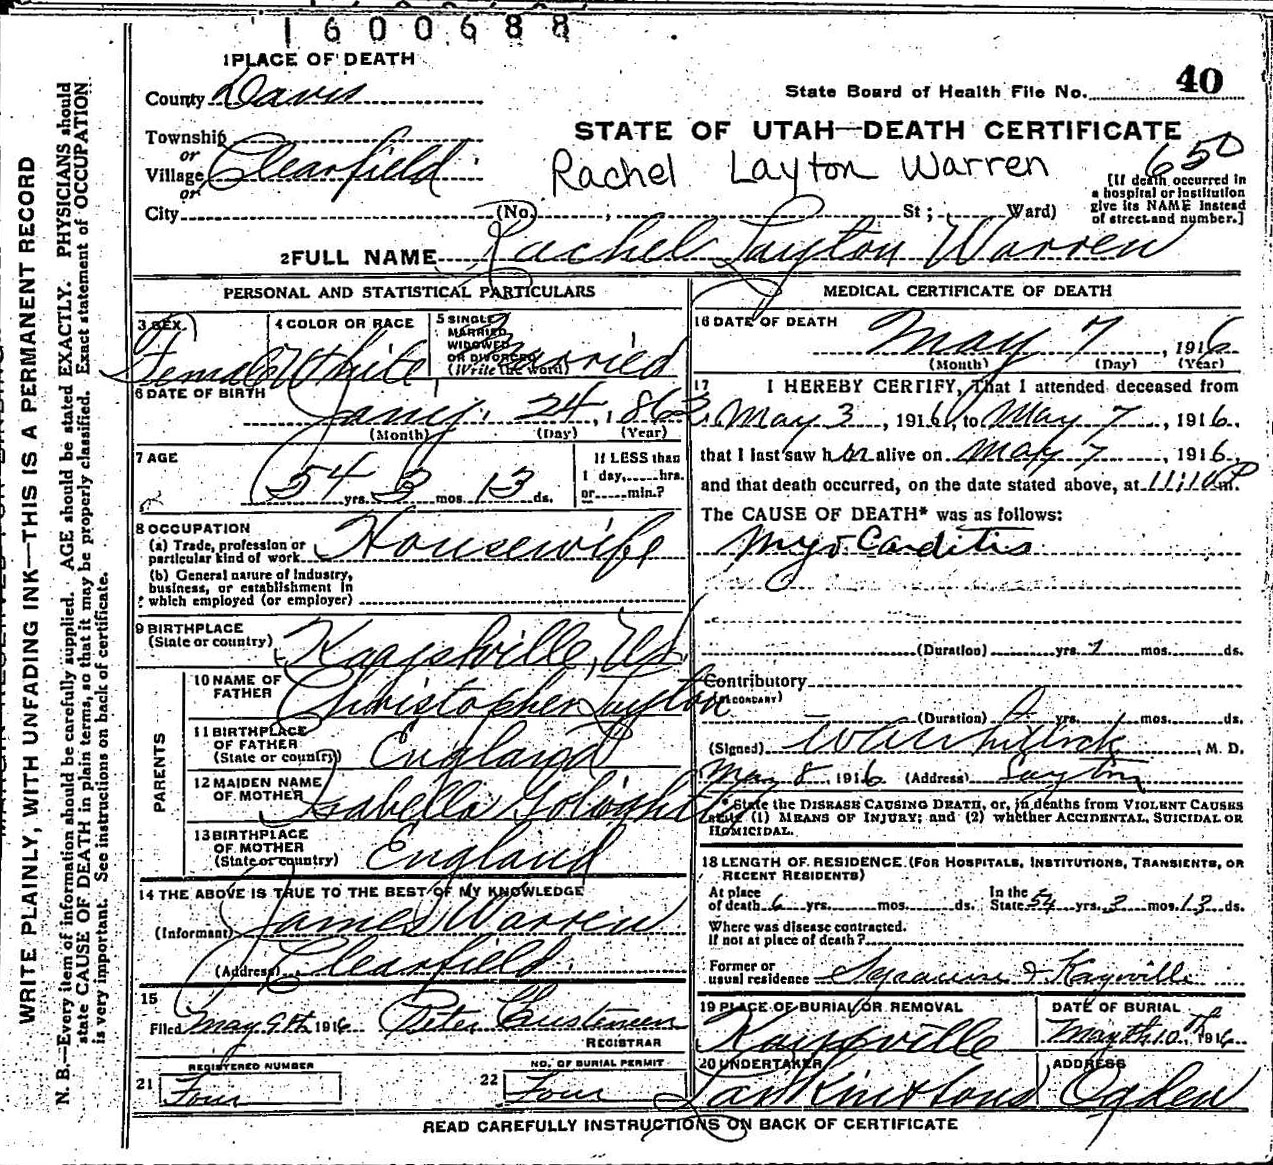 1600688
1 PLACE OF DEATH
County Davis
State Board of Health File No. 40
Township
or
Village Clearfield
or
STATE OF UTAH—DEATH CERTIFICATE
Rachel Layton Warren
650
[If death occurred in
a hospital or institution
give its NAME instead
of street and number.]
City (No. , St; Ward)
2 FULL NAME Rachel Layton Warren
PERSONAL AND STATISTICAL PARTICULARS
3 SEX Female
4 COLOR OR RACE White
5 SINGLE
MARRIED
WIDOWED
OR DIVORCED
(Write the word) Married
6 DATE OF BIRTH
Jany. 24, 1862
(Month) (Day) (Year)
7 AGE
54 yrs. 3 mos. 13 ds.
If LESS than
1 day, hrs.
or min.?
8 OCCUPATION
(a) Trade, profession or
particular kind of work Housewife
(b) General nature of Industry,
business, or establishment in
which employed (or employer)
9 BIRTHPLACE
(State or country) Kaysville, Ut.
PARENTS
10 NAME OF
FATHER Christopher Layton
11 BIRTHPLACE
OF FATHER
(State or country) England
12 MAIDEN NAME
OF MOTHER Isabella
13 BIRTHPLACE
OF MOTHER
(State or country) England
14 THE ABOVE IS TRUE TO THE BEST OF MY KNOWLEDGE
(Informant) James Warren
(Address) Clearfield
15
Filed May 9th 1916 Peter Christensen
REGISTRAR
REGISTERED NUMBER
21 Four
NO. OF BURIAL PERMIT
22 Four
MEDICAL CERTIFICATE OF DEATH
16 DATE OF DEATH
May 7, 1916
(Month) (Day) (Year)
17 I HEREBY CERTIFY, That I attended deceased from
May 3, 1916, to May 7, 1916.
that I last saw her alive on May 7, 1916.
and that death occurred, on the date stated above, at 11:10 P m.
The CAUSE OF DEATH* was as follows:
Myo Carditis
(Duration) yrs. mos. ds.
Contributory
(SECONDARY)
(Duration) yrs. mos. ds.
(Signed) , M. D.
May 8, 1916 (Address) Layton
* State the DISEASE CAUSING DEATH, or, in deaths from VIOLENT CAUSES
state (1) MEANS OF INJURY; and (2) whether ACCIDENTAL, SUICIDAL OR
HOMICIDAL.
18 LENGTH OF RESIDENCE (FOR HOSPITALS, INSTITUTIONS, TRANSIENTS, OR
RECENT RESIDENTS)
At place
of death 6 yrs. mos. ds.
In the
State 54 yrs. 3 mos. 13 ds.
Where was disease contracted.
If not at place of death?
Former or
usual residence Syracuse & Kaysville
19 PLACE OF BURIAL OR REMOVAL
Kaysville
DATE OF BURIAL
May th 10th, 1916
20 UNDERTAKER
ADDRESS
Ogden
READ CAREFULLY INSTRUCTIONS ON BACK OF CERTIFICATE
WRITE PLAINLY, WITH UNFADING INK—THIS IS A PERMANENT RECORD
N. B.—Every item of information should be carefully supplied. AGE should be stated EXACTLY. PHYSICIANS should
state CAUSE OF DEATH in plain terms, so that it may be properly classified. Exact statement of OCCUPATION
is very important. See instructions on back of certificate.